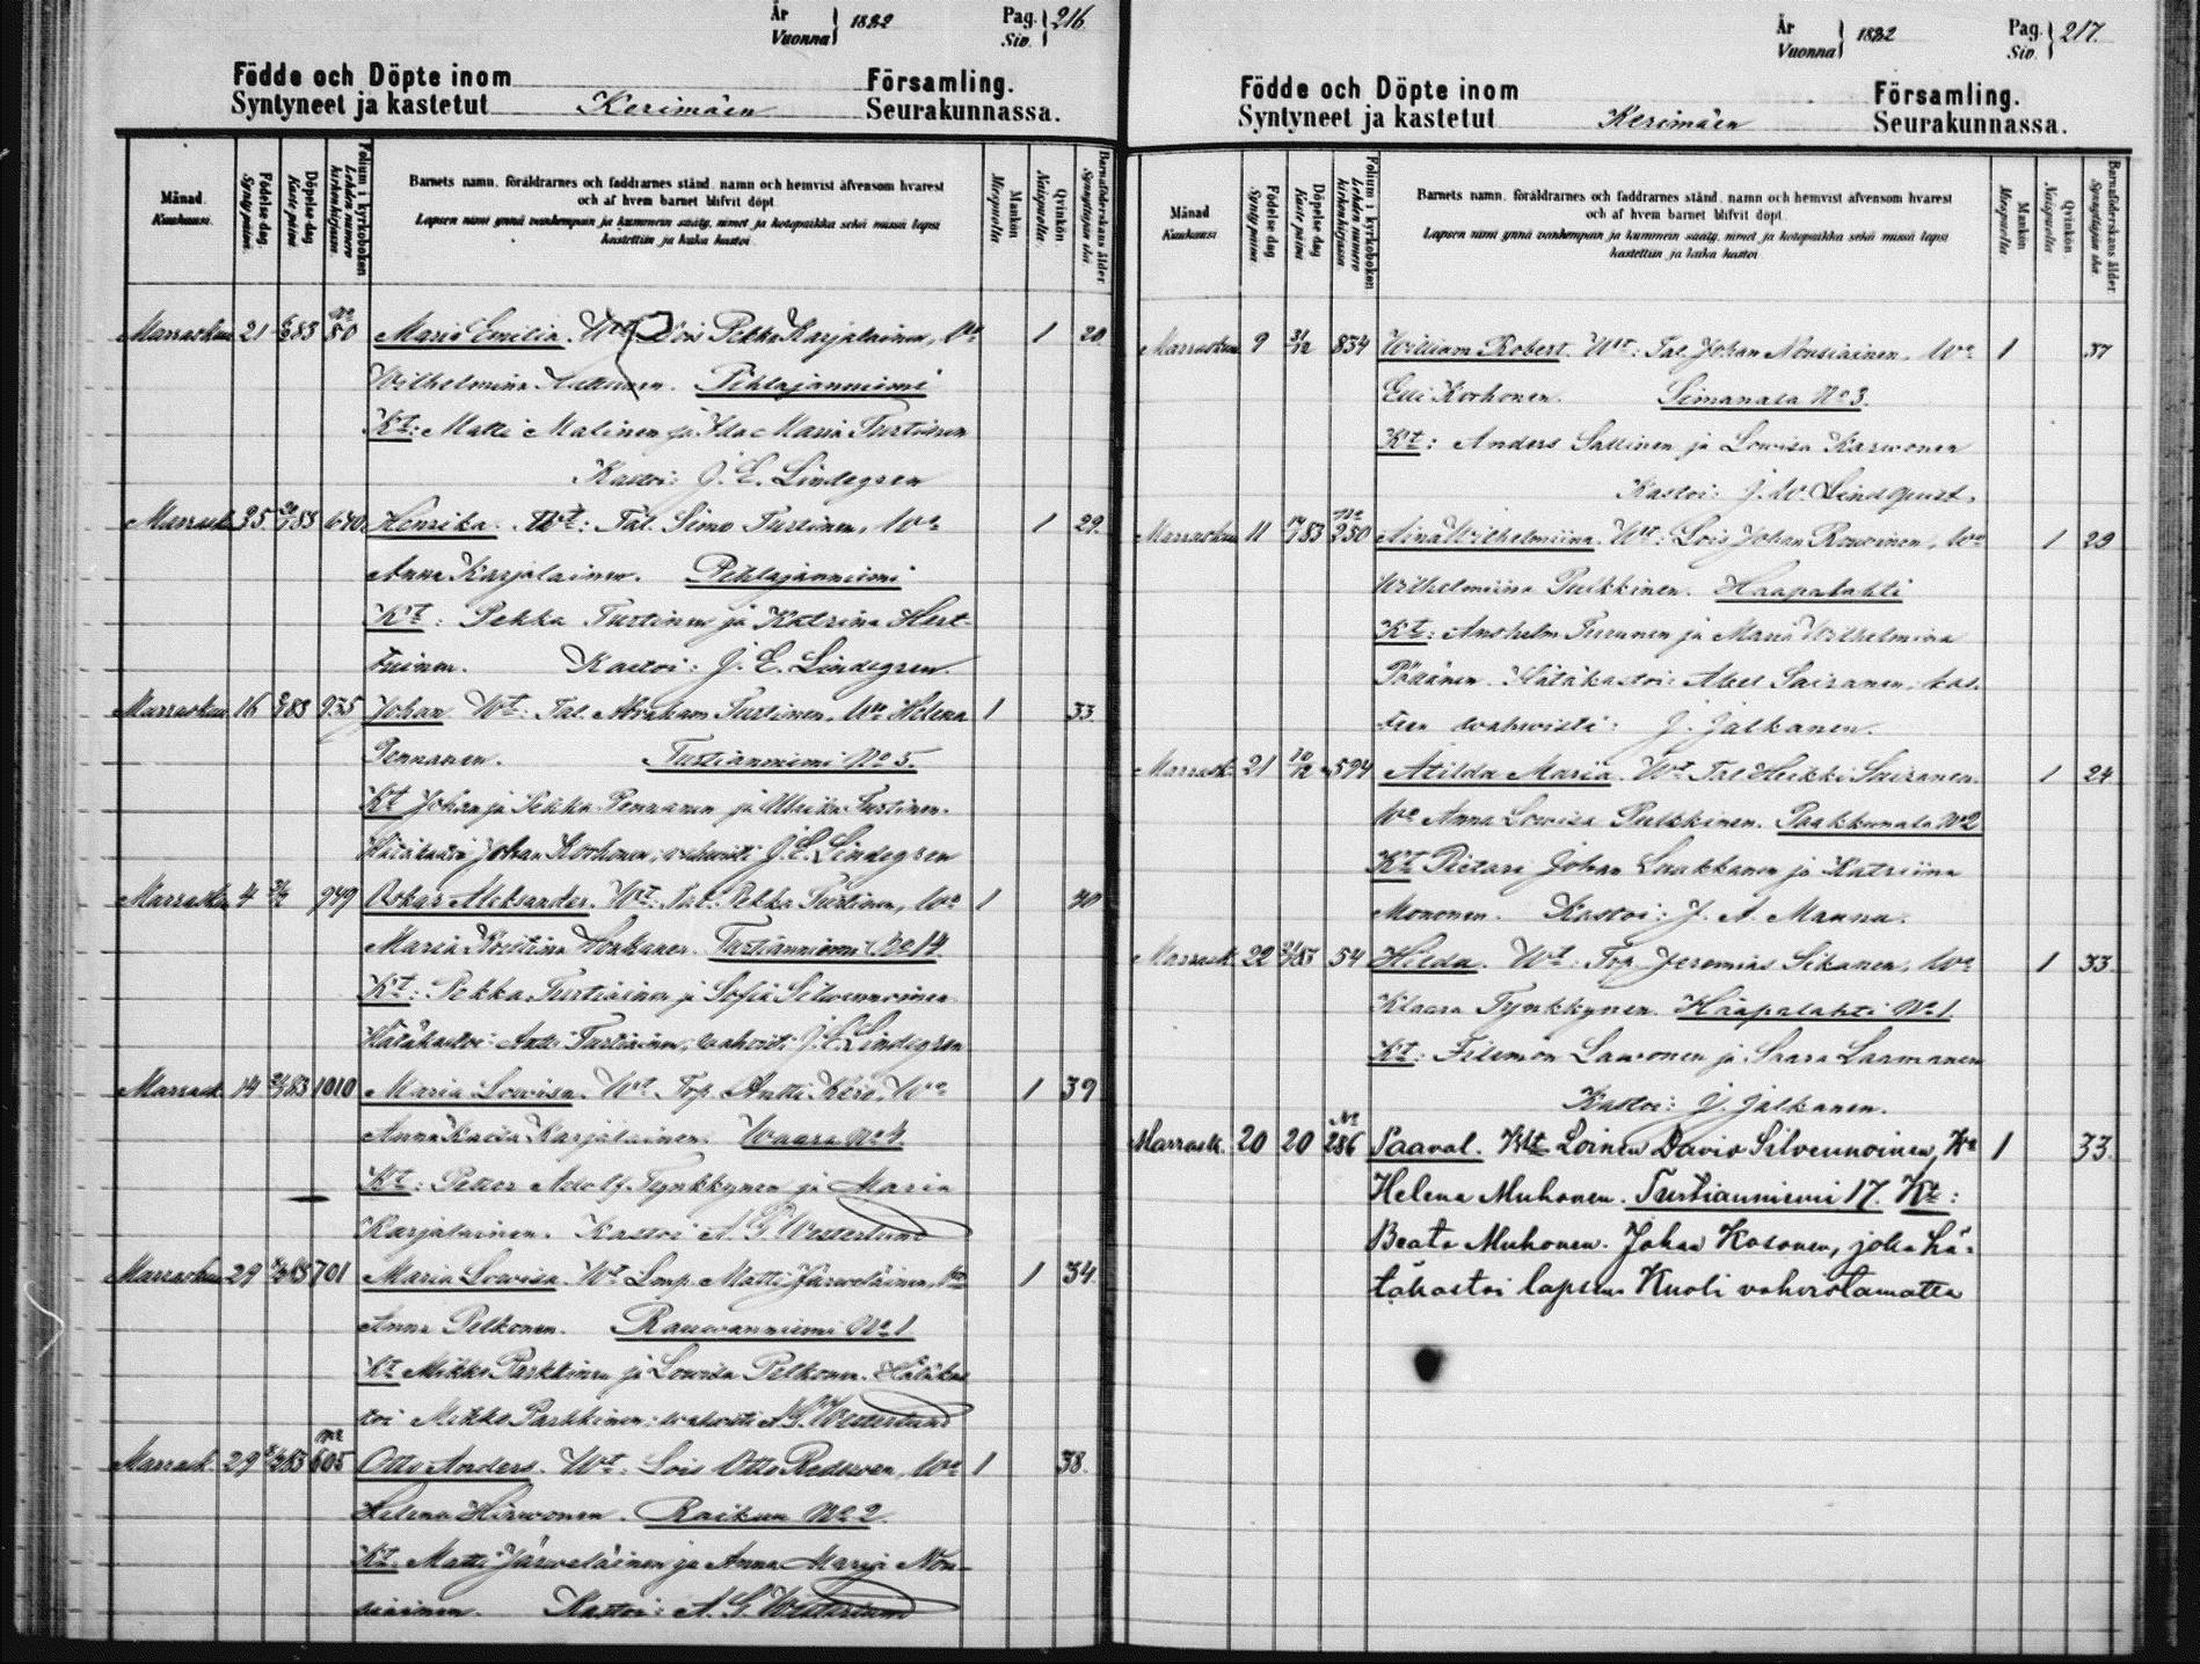 År
Vuonna 1882
Pag.
Siv. 216
Födde och Döpte inom Församling.
Syntyneet ja kastetut Kerimäen Seurakunnassa.
Månad.
Kuukausi.
Födelse-dag.
Synty-päivä.
Döpelse-dag
Kaste-päivä
Folium i kyrkoboken
Lehden numero kirkonkirjassa
Barnets namn, föräldrarnes och faddrarnes stånd, namn och hemvist äfvensom hvarest
och af hvem barnet blifvit döpt.
Lapsen nimi ynnä vanhempain ja kummein sääty, nimet ja kotopaikka sekä missä lapsi
kastettiin ja kuka kastoi
Mankön
Miespuolia
Qvinkön
Naispuolia
Barnaföderskans ålder
Synnyttäjän ikä
Marraskuu 21 83 No 80 Maria Emilia. Wt Lois Pekka Karjalainen, Wo 1 20.
Wilhelmina. Pihlajanniemi
Kt: Matti Malinen ja Ida Maria Turtiinen
Kastoi: J. E. Lindegren
Marrask. 25 83 640 Henrika. Wt: Tal. Simo Turtinen, Wo 1 29.
Anna Karjalainen. Pihlajanniemi
Kt: Pekka Turtinen ja Katrina Hert-
tuinen. Kastoi: J. E. Lindegren.
Marraskuu 16 83 935 Johan Wt: Tal. Abraham Turtinen, Wo Helena 1 33.
Pennanen. Turtianniemi No 5.
Kt Johan ja Pekka Pennanen ja Ulriika Turtinen.
Hätäkastoi Johan Korhonen, vahvisti J. E. Lindegren
Marrask. 4 949 Oskar Aleksander. Wt: Tal. Pekka Turtinen, Wo 1 40
Maria Kristina. Turtianniemi No 14.
Kt: Pekka Turtiainen ja Sofia Silwennoinen
Hätäkastoi Antti Turtiainen, wahvisti J. E. Lindegren
Marrask. 14 83 1010 Maria Lowisa. Wt. Torp. Antti Käre, Wo 1 39
Anna Kaisa Karjalainen. Waara No 4.
Kt: Petter Adolf Tynkkynen ja Maria
Karjalainen. Kastoi A. G. Westerlund
Marraskuu 29 83 701 Maria Lowisa. Wt Lmp. Matti Järweläinen, Wo 1 34.
Anna Pelkonen. Rauwanniemi No 1
Kt Mikko Parkkinen ja Lowisa Pelkonen. Hätäkas-
toi Mikko Parkkinen: wahvisti A. G. Westerlund
Marrask. 29 83 No 605 Otto Anders. Wt: Lois Otto Redsven, Wo 1 38.
Helena Hirwonen. Raikuu No 2.
Kt. Matti Järweläinen ja Anna Maria Nou-
siainen. Kastoi: A. G. Westerlund
År
Vuonna 1882
Pag.
Siv. 217.
Födde och Döpte inom Församling.
Syntyneet ja kastetut Kerimäen Seurakunnassa.
Månad
Kuukausi
Födelse-dag
Synty-päivä
Döpelse-dag
Kaste-päivä
Folium i kyrkoboken
Lehden numero kirkonkirjassa
Barnets namn, föräldrarnes och faddrarnes stånd, namn och hemvist äfvensom hvarest
och af hvem barnet blifvit döpt.
Lapsen nimi ynnä vanhempain ja kummein sääty, nimet ja kotopaikka sekä missä lapsi
kastettiin ja kuka kastoi
Mankön
Miespuolia
Qvinkön
Naispuolia
Barnaföderskans ålder
Synnyttäjän ikä
Marraskuu 9 31/12 834 William Robert. Wt: Tal. Johan Nousiainen, Wo 1 37
Elli Korhonen. Simanala No 3.
Kt: Anders Sallinen ja Lowisa Karwonen
Kastoi: J. W. Lindqvist.
Marraskuu 11 83 No 250 Aina Wilhelmiina. Wt: Lois Johan Rouvinen, Wo 1 29
Wilhelmiina Pulkkinen. Haapalahti
Kt: Anshelm Turunen ja Maria Wilhelmina
Pöllänen. Hätäkastoi Abel Sairanen, kas-
teen wahwisti: J. Jalkanen.
Marrask. 21 10/12 594 Atilda Maria. Wt Tal Heikki Sairanen. 1 24
Wo Anna Lowisa Pulkkinen. Paakkunala No 2
Kt Pietari Johan Laukkanen ja Katriina
Mononen. Kastoi: J. A. Mannu.
Marrask. 22 83 54 Hilda. Wt: Torp Jeremias Sikanen, Wo 1 33
Klaara Tynkkynen. Haapalahti No 1
Kt: Filemon Lawonen ja Saara Laamanen
Kastoi: J. Jalkanen.
Marrask. 20 20 No 286 Paaval. Wt Loinen David Silvennoinen, Wo 1 33.
Helena Muhonen. Turtianniemi 17. Kt:
Beata Muhonen. Johan Kosonen, joka hä-
täkastoi lapsen. Kuoli vahvistamatta